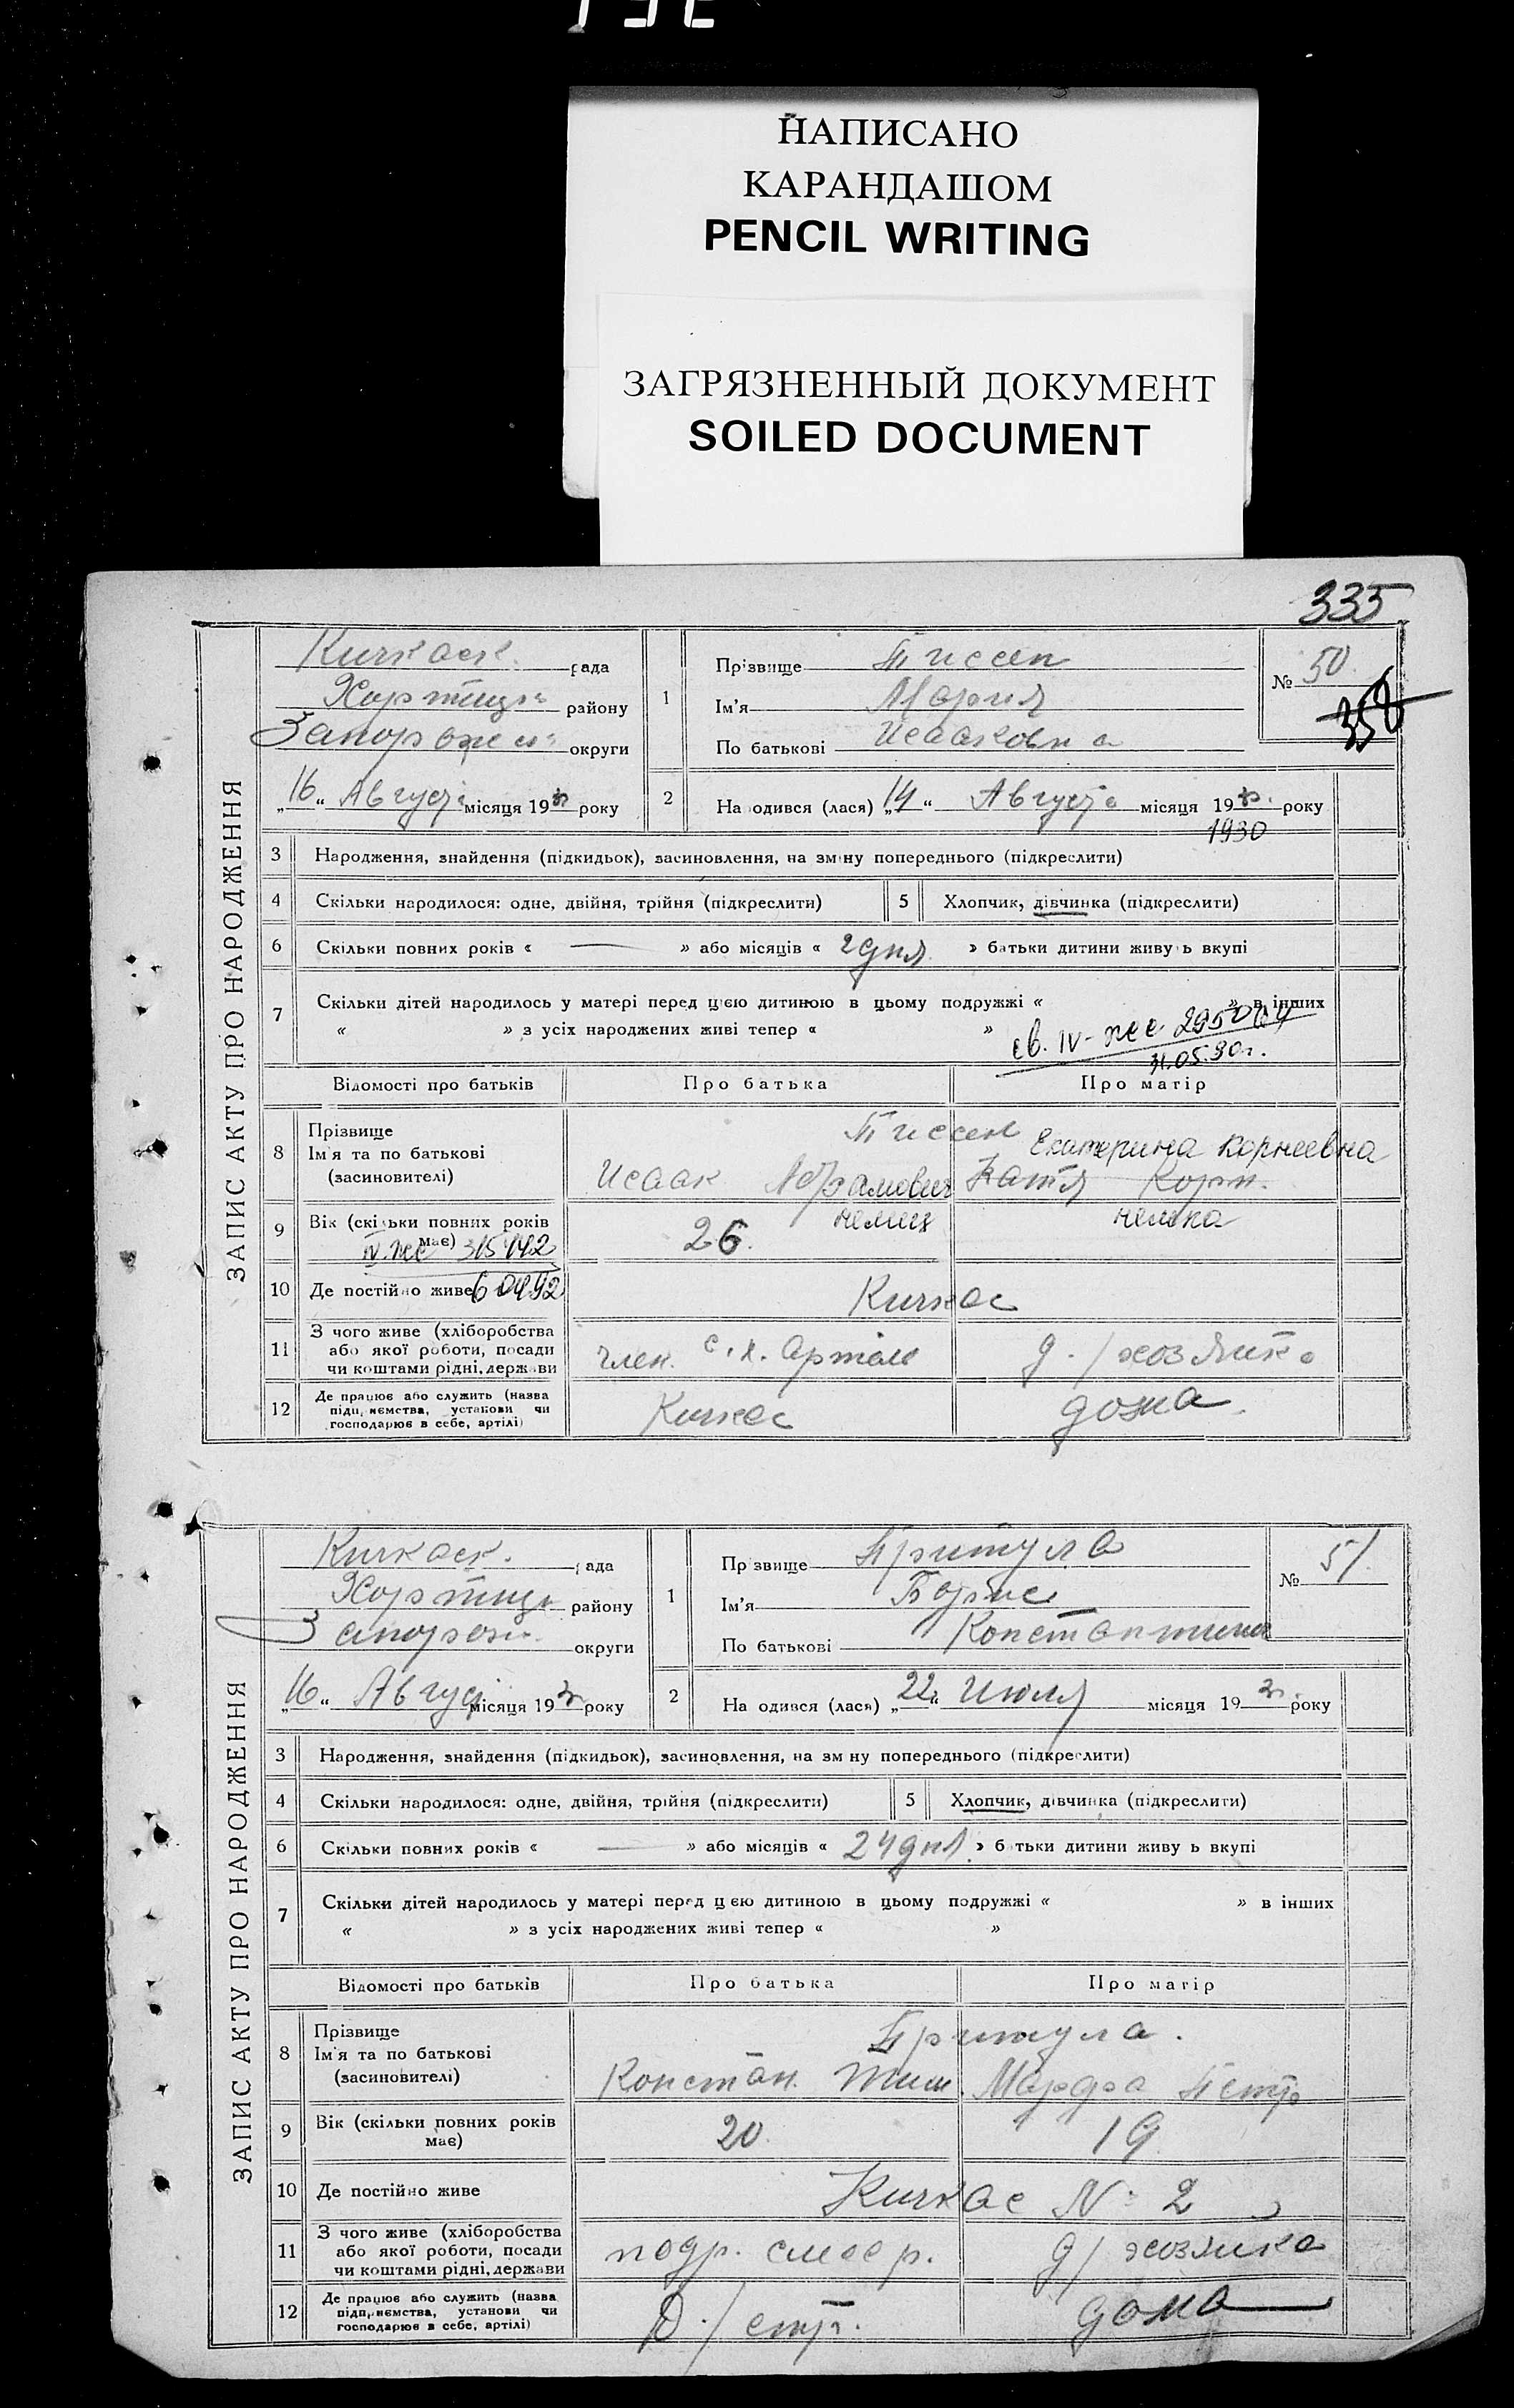 НАПИСАНО
КАРАНДАШОМ
PENCIL WRITING
ЗАГРЯЗНЕННЫЙ ДОКУМЕНТ
SOILED DOCUMENT
335
ЗАПИС АКТУ ПРО НАРОДЖЕННЯ
Кичкаск. рада
Хортиц. району
Запорож. округи
„16“ Август місяця 1930 року
1 Прізвище Тиссен
Ім'я Мария
По батькові Исааковна
№ 50
358
2 На одився (лася) „14“ Августа місяця 1930 року
1930
3 Народження, знайдення (підкидьок), засиновлення, на зміну попереднього (підкреслити)
4 Скільки народилося: одне, двійня, трійня (підкреслити) 5 Хлопчик, дівчинка (підкреслити)
6 Скільки повних років « — » або місяців « 2 дня » батьки дитини живу ь вкупі
7 Скільки дітей народилось у матері перед цією дитиною в цьому подружжі « » в інших
« » з усіх народжених живі тепер « »
св. IV-жс 295044
31.05.90г.
Відомості про батьків Про батька Про матір
8 Прізвище
Ім'я та по батькові
(засиновителі)
Тиссен
Екатерина Корнеевна
Исаак Абрамович Катя Корн.
9 Вік (скільки повних років має) 26. немец немка
IV.жс 315142
6 04.92
10 Де постійно живе Кичкас
11 З чого живе (хліборобства
або якої роботи, посади
чи коштами рідні, держави
член. с.х. Артели д./хозяйка
12 Де працює або служить (назва
підприємства, установи чи
господарює в себе, артілі)
Кичкас дома.
ЗАПИС АКТУ ПРО НАРОДЖЕННЯ
Кичкаск. рада
Хортиц. району
Запорож. округи
„16“ Август місяця 1930 року
1 Прізвище Притула
Ім'я Борис
По батькові Константинов
№ 51
2 На одився (лася) „22“ Июля місяця 1930 року
3 Народження, знайдення (підкидьок), засиновлення, на зм ну попереднього (підкреслити)
4 Скільки народилося: одне, двійня, трійня (підкреслити) 5 Хлопчик, дівчинка (підкреслити)
6 Скільки повних років « — » або місяців « 24 дня » б тьки дитини живу ь вкупі
7 Скільки дітей народилось у матері перед цією дитиною в цьому подружжі « » в інших
« » з усіх народжених живі тепер « »
Відомості про батьків Про батька Про матір
8 Прізвище
Ім'я та по батькові
(засиновителі)
Притула.
Констан. Тим. Марфа Петр
9 Вік (скільки повних років має) 20. 19.
10 Де постійно живе Кичкас № 2
11 З чого живе (хліборобства
або якої роботи, посади
чи коштами рідні, держави
подр. слесар. д/хозяйка
12 Де працює або служить (назва
підприємства, установи чи
господарює в себе, артілі)
Д./стр. дома